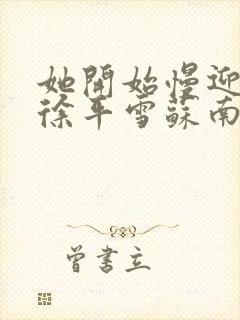 她開始慢迎
徐平雪蘇南
曾書立